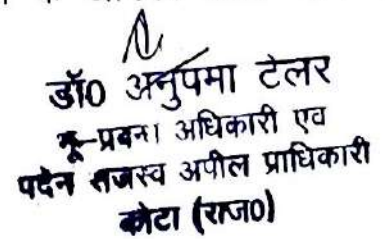 डॉ0 अनुपमा टेलर
भू-प्रबन। अधिकारी एव
पदेन राजस्व अपील प्राधिकारी
कोटा (राज0)